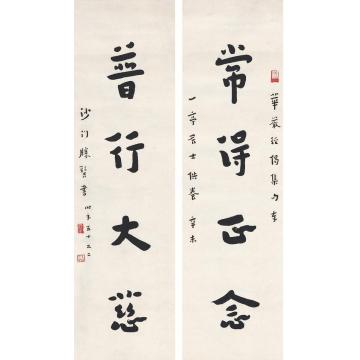 華嚴經偈集句奉
常得正念
一亭居士供養 辛未
普行大慈
沙門勝書 時年五十又二